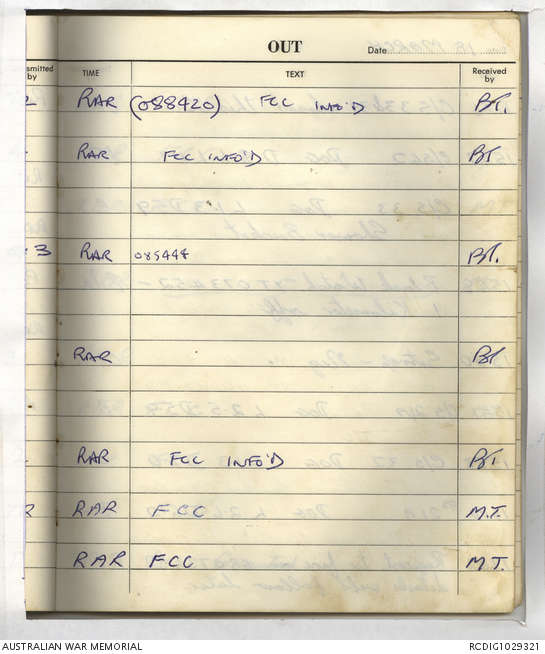 OUT
Date
smitted by TIME TEXT Received by
2 RAR (088420) FCC INFO'D BT.
RAR FCC INFO'D BT
3 RAR 085448 BT.
RAR BT
RAR FCC INFO'D BT.
R RAR FCC M.T.
RAR FCC M.T.
AUSTRALIAN WAR MEMORIAL RCDIG1029321